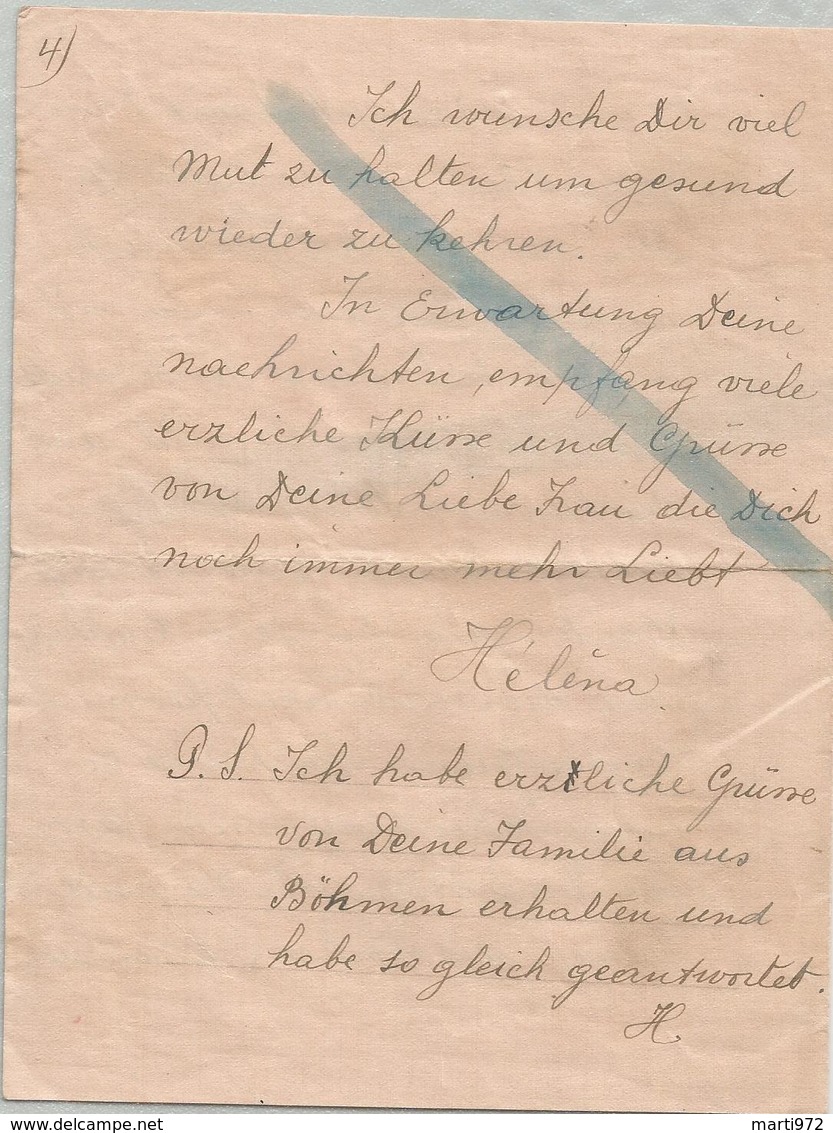 4)
Ich wunsche Dir viel
Mut zu halten um gesund
wieder zu kehren.
In Erwartung Deine
nachrichten, empfang viele
erzliche Küsse und Grüsse
von Deine Liebe Frau die Dich
noch immer mehr Liebt
Héléna.
P.S. Ich habe erzliche Grüsse
von Deine Familie aus
Böhmen erhalten und
habe so gleich geantwortet.
H.
www.delcampe.net
marti972